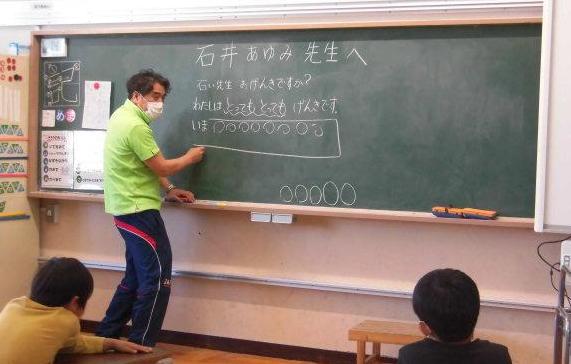 石井 あゆみ 先生へ
石い先生 おげんきですか?
わたしは とっても とっても げんきです。
いま○○○○○○○○
○○○○○